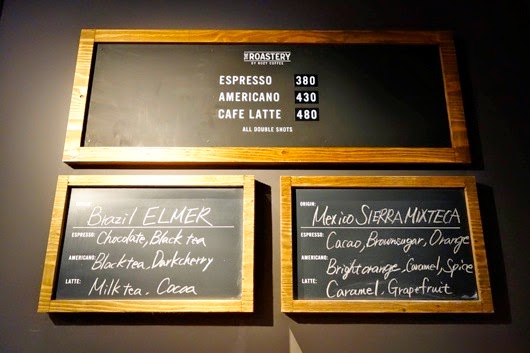 THE ROASTERY
BY NOZY COFFEE
ESPRESSO 380
AMERICANO 430
CAFE LATTE 480
ALL DOUBLE SHOTS
ORIGIN:
Brazil ELMER
ESPRESSO:
Chocolate, Black tea
AMERICANO:
Black tea, Dark cherry
LATTE:
Milk tea, Cocoa
ORIGIN:
Mexico SIERRA MIXTECA
ESPRESSO:
Cacao, Brown sugar, Orange
AMERICANO:
Bright orange, Caramel, Spice
LATTE:
Caramel, Grapefruit